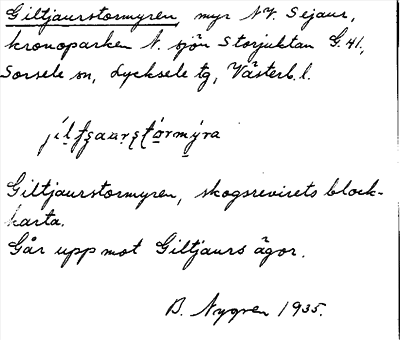 Giltjaurstormyren, myr N.V. Sejaur,
kronoparken N. sjön Storjuktan G. 41,
Sorsele sn, Lycksele tg, Västerb. l.
Giltjaurstormyren, skogsrevirets block-
karta.
Går upp mot Giltjaurs ägor.
B. Nygren 1935.